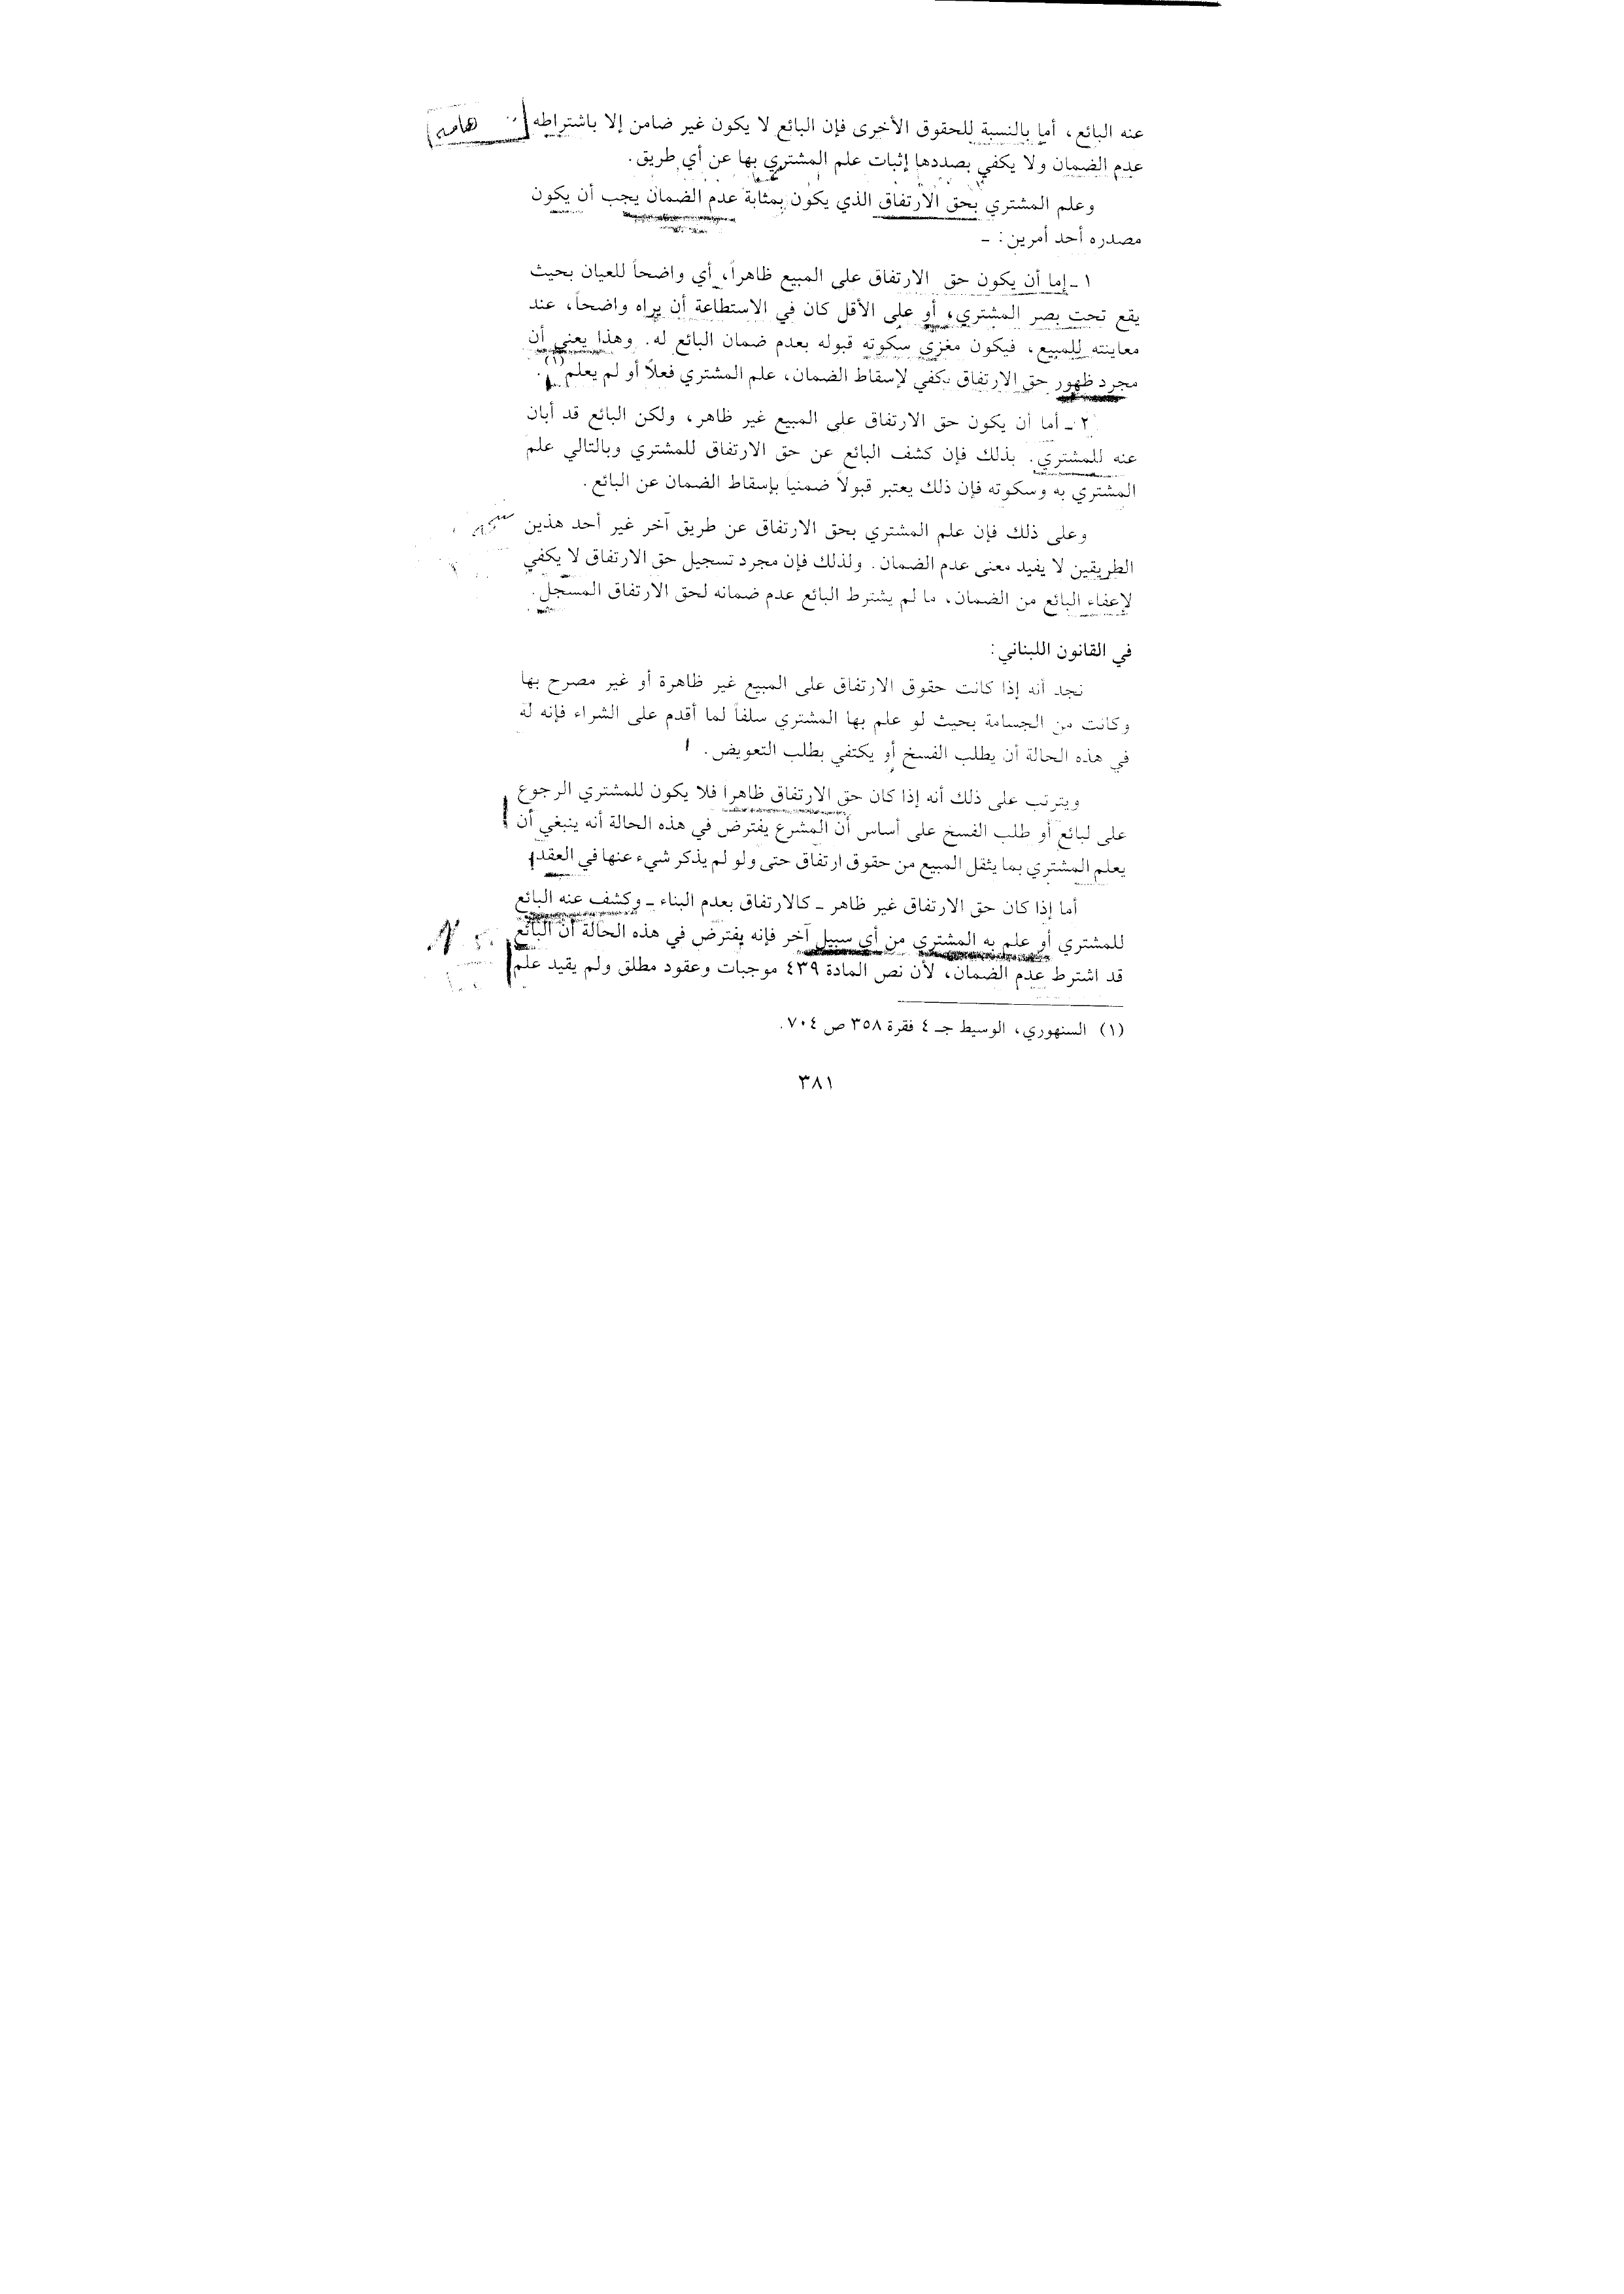 عنه البائع، أما بالنسبة للحقوق الأخرى فإن البائع لا يكون غير ضامن إلا باشتراطه
عدم الضمان ولا يكفي بصددها إثبات علم المشتري بها عن أي طريق.
وعلم المشتري بحق الارتفاق الذي يكون بمثابة عدم الضمان يجب أن يكون
مصدره أحد أمرين: ـ
١ ـ إما أن يكون حق الارتفاق على المبيع ظاهراً، أي واضحاً للعيان بحيث
يقع تحت بصر المشتري، أو على الأقل كان في الاستطاعة أن يراه واضحاً، عند
معاينته للمبيع، فيكون مغزى سكوته قبوله بعدم ضمان البائع له. وهذا يعني أن
مجرد ظهور حق الارتفاق يكفي لإسقاط الضمان، علم المشتري فعلاً أو لم يعلم(١).
٢ ـ أما أن يكون حق الارتفاق على المبيع غير ظاهر، ولكن البائع قد أبان
عنه للمشتري. بذلك فإن كشف البائع عن حق الارتفاق للمشتري وبالتالي علم
المشتري به وسكوته فإن ذلك يعتبر قبولاً ضمنياً بإسقاط الضمان عن البائع.
وعلى ذلك فإن علم المشتري بحق الارتفاق عن طريق آخر غير أحد هذين
الطريقين لا يفيد معنى عدم الضمان. ولذلك فإن مجرد تسجيل حق الارتفاق لا يكفي
لإعفاء البائع من الضمان، ما لم يشترط البائع عدم ضمانه لحق الارتفاق المسجل.
في القانون اللبناني:
نجد أنه إذا كانت حقوق الارتفاق على المبيع غير ظاهرة أو غير مصرح بها
وكانت من الجسامة بحيث لو علم بها المشتري سلفاً لما أقدم على الشراء فإنه له
في هذه الحالة أن يطلب الفسخ أو يكتفي بطلب التعويض.
ويترتب على ذلك أنه إذا كان حق الارتفاق ظاهراً فلا يكون للمشتري الرجوع
على لبائع أو طلب الفسخ على أساس أن المشرع يفترض في هذه الحالة أنه ينبغي أن
يعلم المشتري بما يثقل المبيع من حقوق ارتفاق حتى ولو لم يذكر شيء عنها في العقد
أما إذا كان حق الارتفاق غير ظاهر ـ كالارتفاق بعدم البناء ـ وكشف عنه البائع
للمشتري أو علم به المشتري من أي سبيل آخر فإنه يفترض في هذه الحالة أن البائع
قد اشترط عدم الضمان، لأن نص المادة ٤٣٩ موجبات وعقود مطلق ولم يقيد علم
(١) السنهوري، الوسيط جـ ٤ فقرة ٣٥٨ ص ٧٠٤.
٣٨١